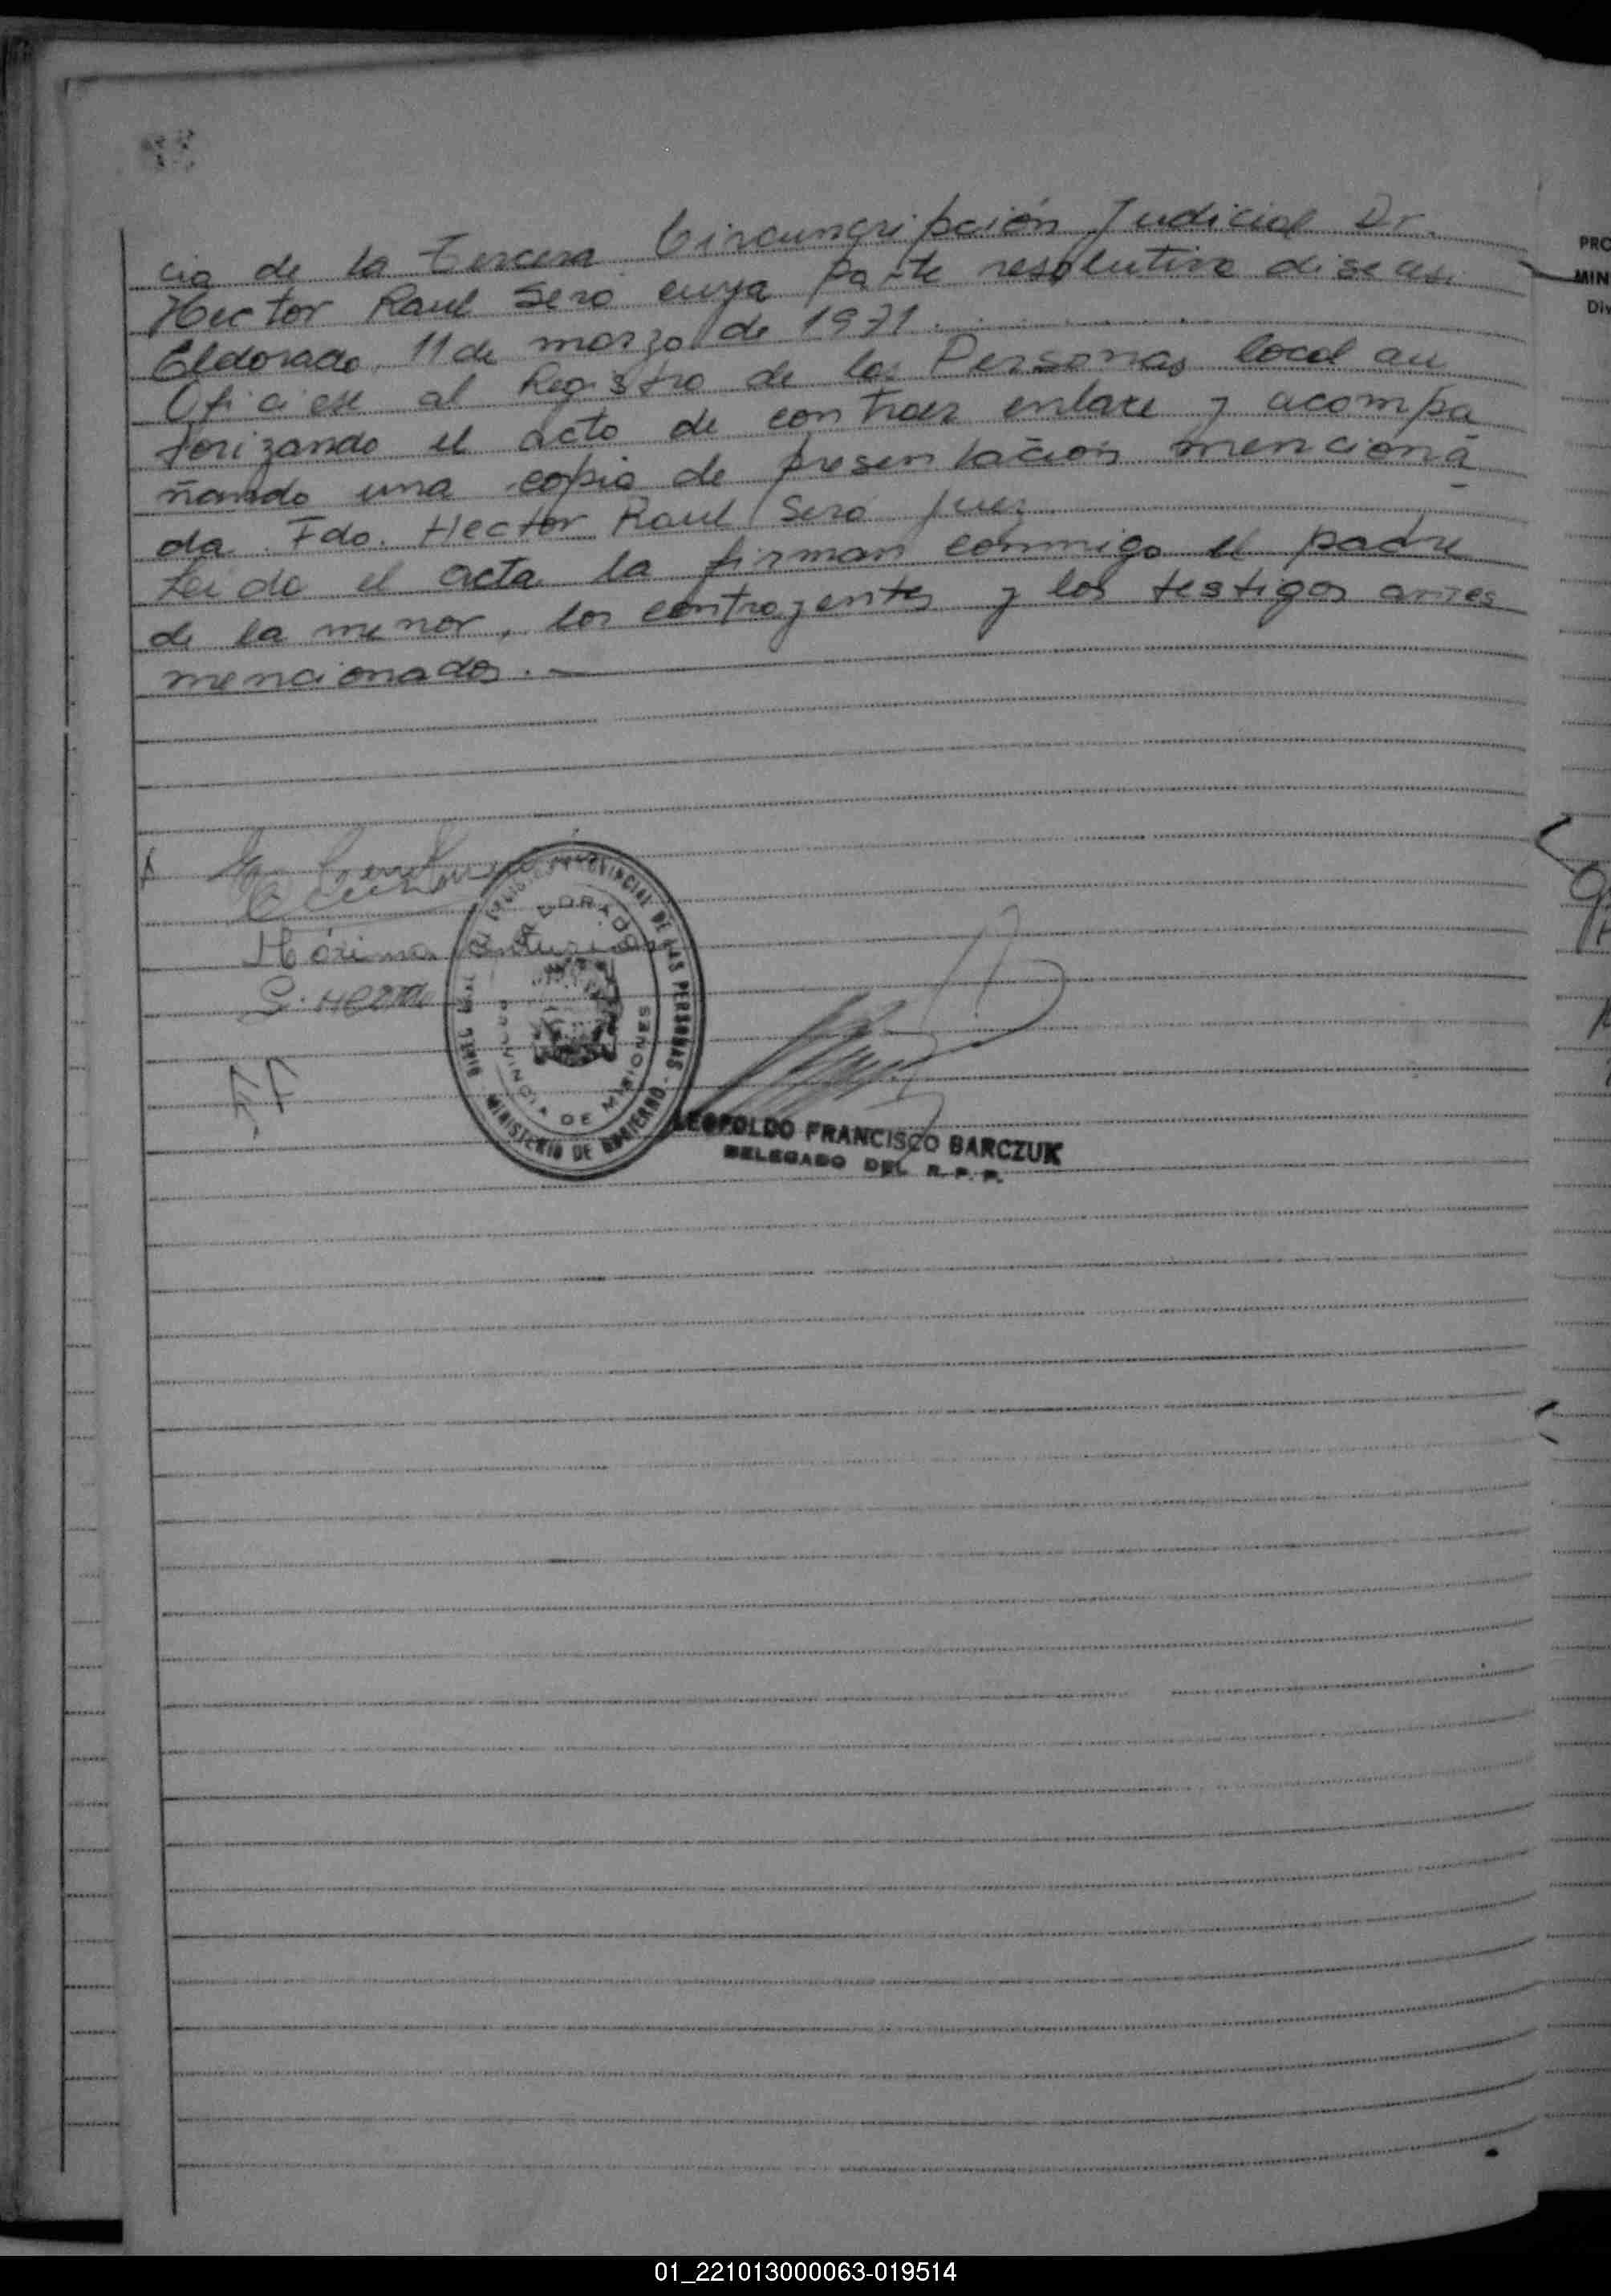 cia de la tercera Circunscripción Judicial Dr.
Hector Raul Sero cuya parte resolutiva dise asi
Eldorado, 11 de marzo de 1971.
Oficiese al Registro de las Personas local au
torizando el acto de contraer enlace y acompa
ñando una copia de presentación menciona
da. Fdo. Hector Raul Sero Juez
Leida el acta la firman conmigo el padre
de la menor, los contrayentes y los testigos antes
mencionados.
PROVINCIAL DE LAS PERSONAS
ELDORADO
PROVINCIA DE MISIONES
MINISTERIO DE GOBIERNO
LEOPOLDO FRANCISCO BARCZUK
DELEGADO DEL R. P. P.
PRO
MIN
Div
01_221013000063-019514